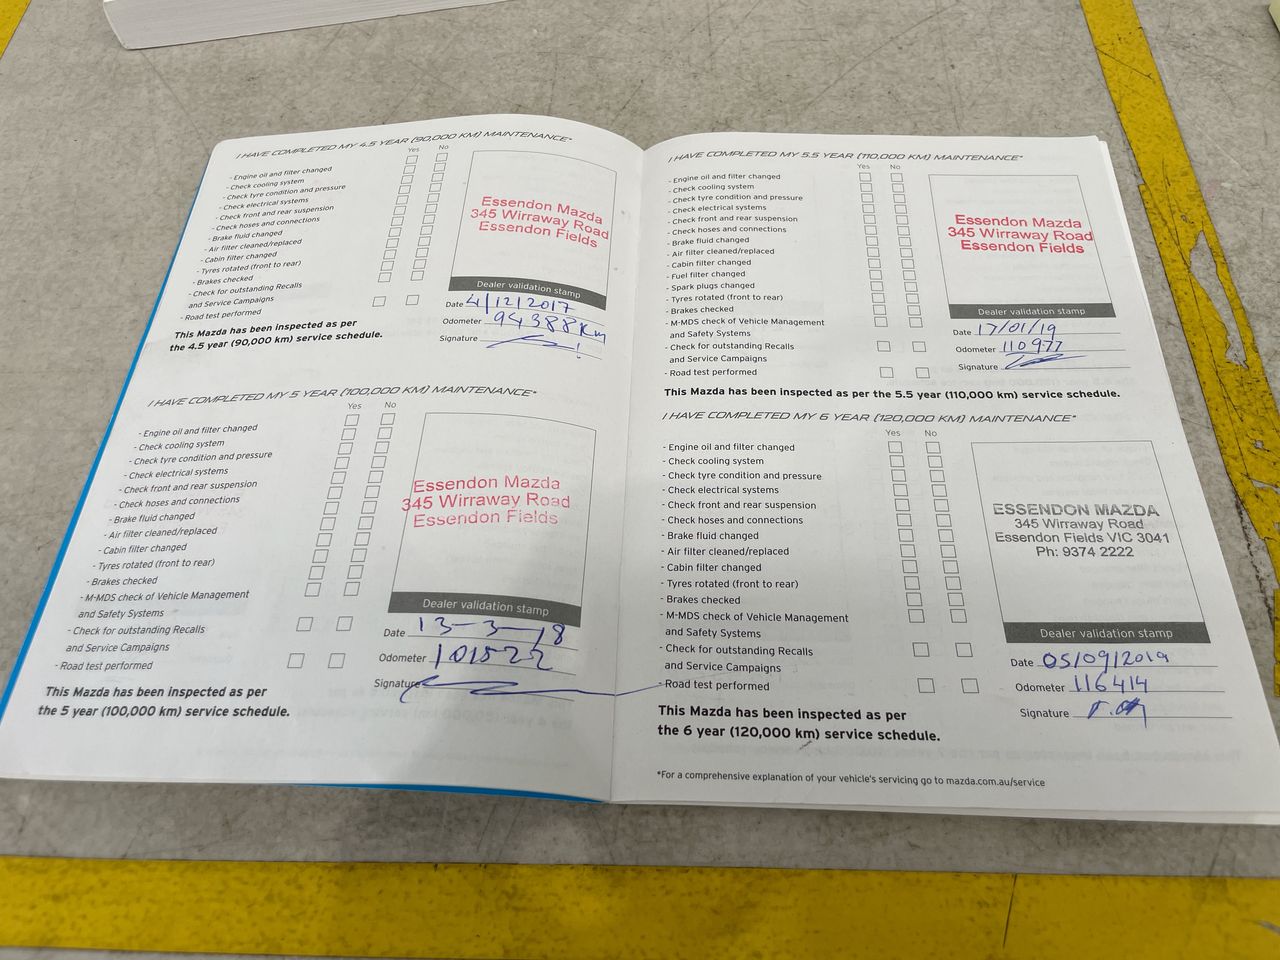 I HAVE COMPLETED MY 4.5 YEAR (90,000 KM) MAINTENANCE*
Yes No
- Engine oil and filter changed
- Check cooling system
- Check tyre condition and pressure
- Check electrical systems
- Check front and rear suspension
- Check hoses and connections
- Brake fluid changed
- Air filter cleaned/replaced
- Cabin filter changed
- Tyres rotated (front to rear)
- Brakes checked
- Check for outstanding Recalls
and Service Campaigns
- Road test performed
This Mazda has been inspected as per
the 4.5 year (90,000 km) service schedule.
Essendon Mazda
345 Wirraway Road
Essendon Fields
Dealer validation stamp
Date 4/12/2017
Odometer 94388km
Signature
I HAVE COMPLETED MY 5 YEAR (100,000 KM) MAINTENANCE*
Yes No
- Engine oil and filter changed
- Check cooling system
- Check tyre condition and pressure
- Check electrical systems
- Check front and rear suspension
- Check hoses and connections
- Brake fluid changed
- Air filter cleaned/replaced
- Cabin filter changed
- Tyres rotated (front to rear)
- Brakes checked
- M-MDS check of Vehicle Management
and Safety Systems
- Check for outstanding Recalls
and Service Campaigns
- Road test performed
This Mazda has been inspected as per
the 5 year (100,000 km) service schedule.
Essendon Mazda
345 Wirraway Road
Essendon Fields
Dealer validation stamp
Date 13-3-18
Odometer 101522
Signature
I HAVE COMPLETED MY 5.5 YEAR (110,000 KM) MAINTENANCE*
Yes No
- Engine oil and filter changed
- Check cooling system
- Check tyre condition and pressure
- Check electrical systems
- Check front and rear suspension
- Check hoses and connections
- Brake fluid changed
- Air filter cleaned/replaced
- Cabin filter changed
- Fuel filter changed
- Spark plugs changed
- Tyres rotated (front to rear)
- Brakes checked
- M-MDS check of Vehicle Management
and Safety Systems
- Check for outstanding Recalls
and Service Campaigns
- Road test performed
This Mazda has been inspected as per the 5.5 year (110,000 km) service schedule.
Essendon Mazda
345 Wirraway Road
Essendon Fields
Dealer validation stamp
Date 17/01/19
Odometer 110977
Signature
I HAVE COMPLETED MY 6 YEAR (120,000 KM) MAINTENANCE*
Yes No
- Engine oil and filter changed
- Check cooling system
- Check tyre condition and pressure
- Check electrical systems
- Check front and rear suspension
- Check hoses and connections
- Brake fluid changed
- Air filter cleaned/replaced
- Cabin filter changed
- Tyres rotated (front to rear)
- Brakes checked
- M-MDS check of Vehicle Management
and Safety Systems
- Check for outstanding Recalls
and Service Campaigns
- Road test performed
This Mazda has been inspected as per
the 6 year (120,000 km) service schedule.
ESSENDON MAZDA
345 Wirraway Road
Essendon Fields VIC 3041
Ph: 9374 2222
Dealer validation stamp
Date 05/09/2019
Odometer 116414
Signature
*For a comprehensive explanation of your vehicle's servicing go to mazda.com.au/service